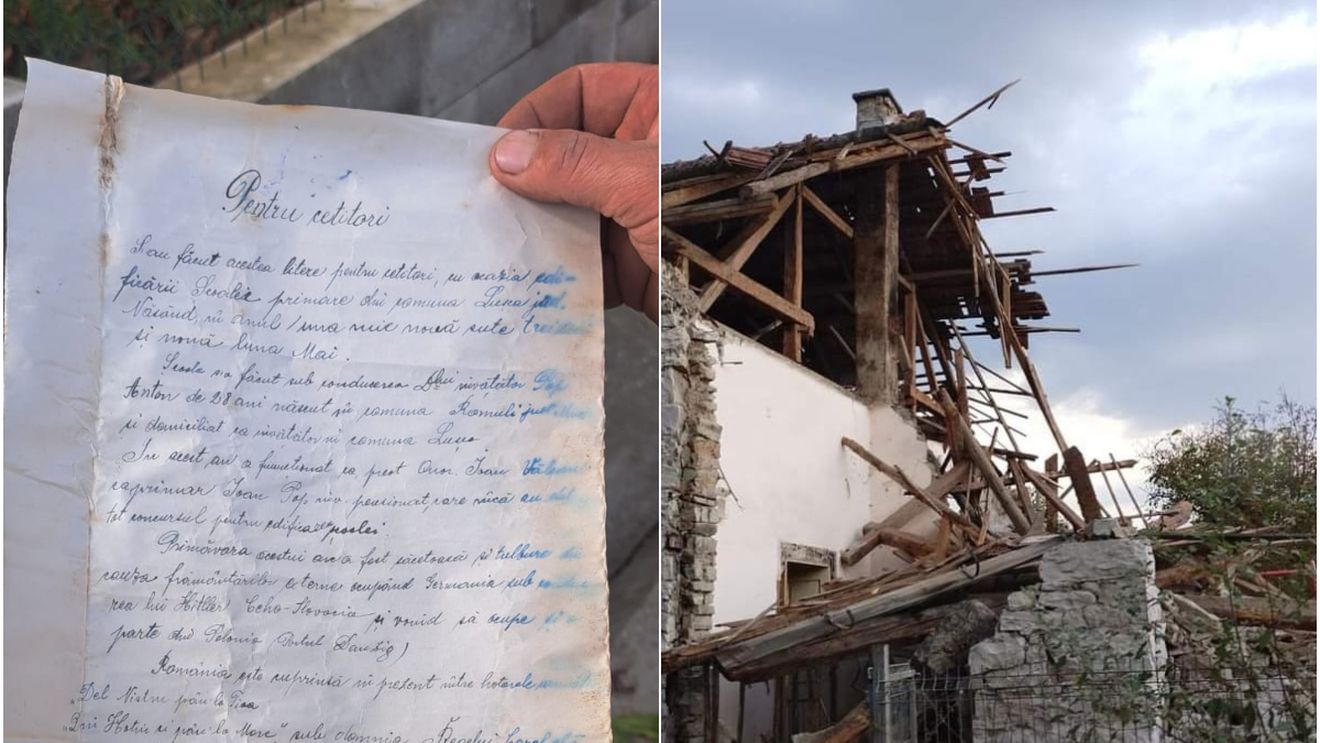 Pentru cetitori
S'au făcut acestea litere pentru cetitori, cu ocazia edi-
ficării Scoalei primare din comuna Lușca jud.
Năsăud, în anul una mie nouă sute treizeci
și nouă luna Mai.
Scoala s'a făcut sub conducerea Dlui învățător Pop
Anton de 28 ani născut în comuna Romuli jud.
și domiciliat ca învățător în comuna Lușca
In acest an a funcționat ca preot Onor. Ioan
caprimar Ioan Pop, inv. pensionat, care încă au dat
tot concursul pentru edificarea școlei.
Primăvara acestui an a fost săcetoasă și tulbure din
cauza frământărilor externe ocupând Germania sub conduce
rea lui Hitller Ceho-Slovacia și voind să ocupe și o
parte din Polonia Portul Danzig)
România este cuprinsă în prezent între hotarele
"Del Nistru pân' la Tisa
"Din Hotin și pân' la Mare" sub domnia Regelui Carol